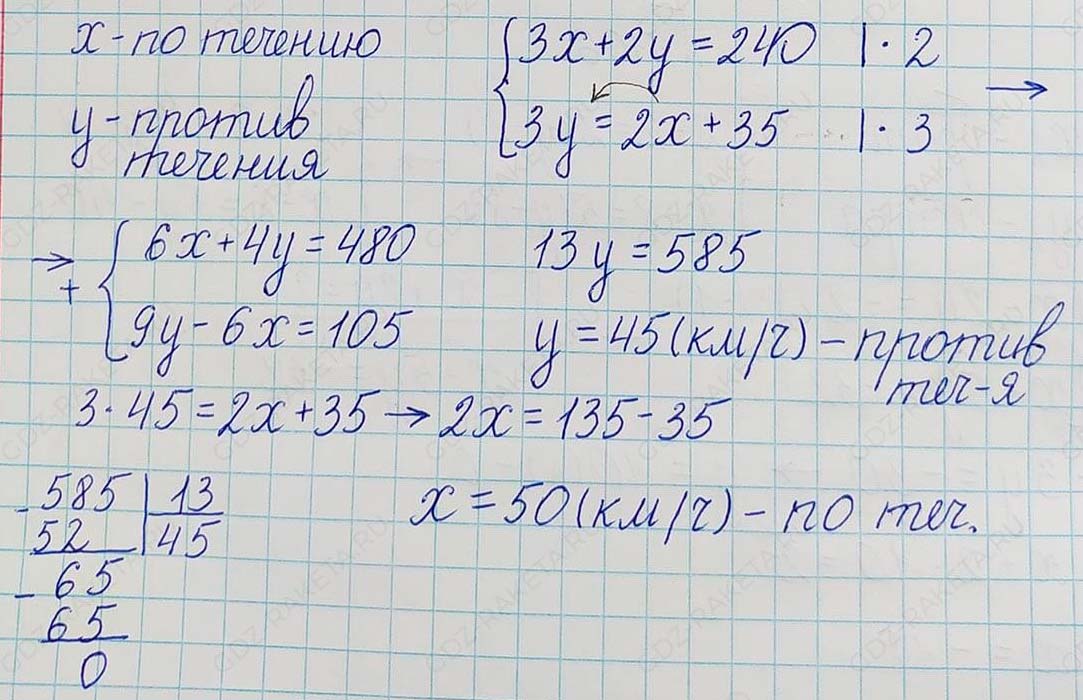 x - по течению
y - против
течения
3x + 2y = 240 | · 2
3y = 2x + 35 | · 3 →
→ 6x + 4y = 480
+ 9y - 6x = 105
13y = 585
y = 45 (км/ч) - против
теч-я
3 · 45 = 2x + 35 → 2x = 135 - 35
x = 50 (км/ч) - по теч.
- 585 | 13
52 | 45
- 65
65
0